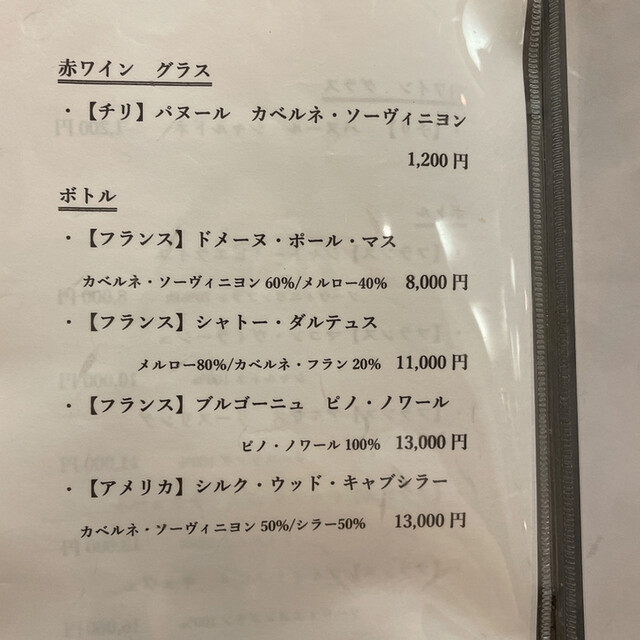 赤ワイン　グラス
・【チリ】パヌール　カベルネ・ソーヴィニヨン
1,200 円
ボトル
・【フランス】ドメーヌ・ポール・マス
カベルネ・ソーヴィニヨン 60%/メルロー40%　8,000 円
・【フランス】シャトー・ダルテュス
メルロー80%/カベルネ・フラン 20%　11,000 円
・【フランス】ブルゴーニュ　ピノ・ノワール
ピノ・ノワール 100%　13,000 円
・【アメリカ】シルク・ウッド・キャブシラー
カベルネ・ソーヴィニヨン 50%/シラー50%　13,000 円